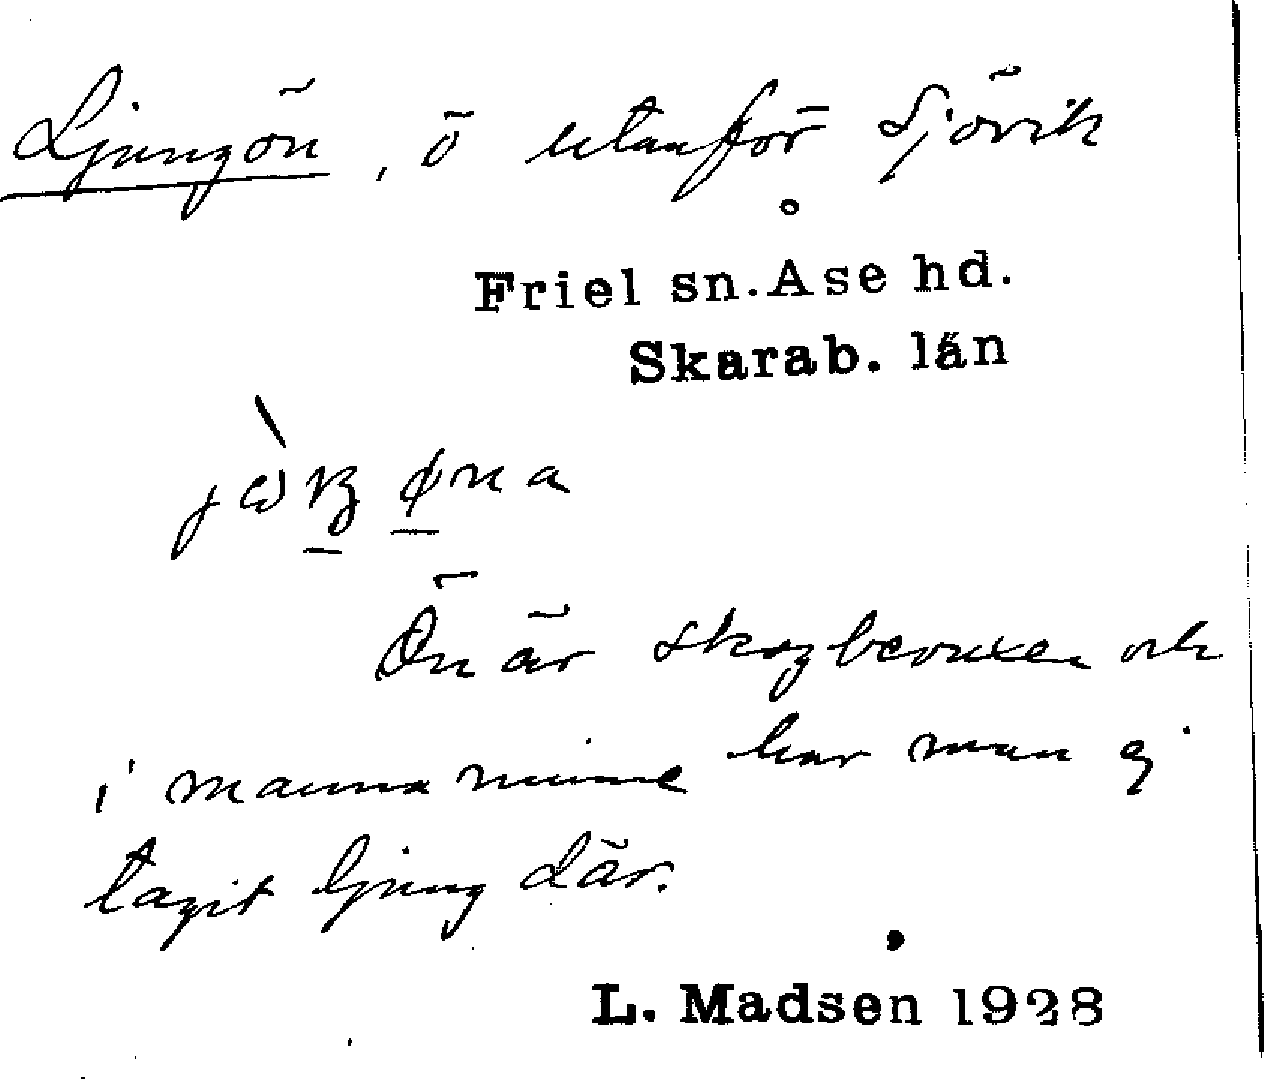 Ljungön, ö utanför Sjövik
Friel sn. Åse hd.
Skarab. län
Ön är skogbevuxen och
i manna minne har man ej
tagit ljung där.
L. Madsen 1928